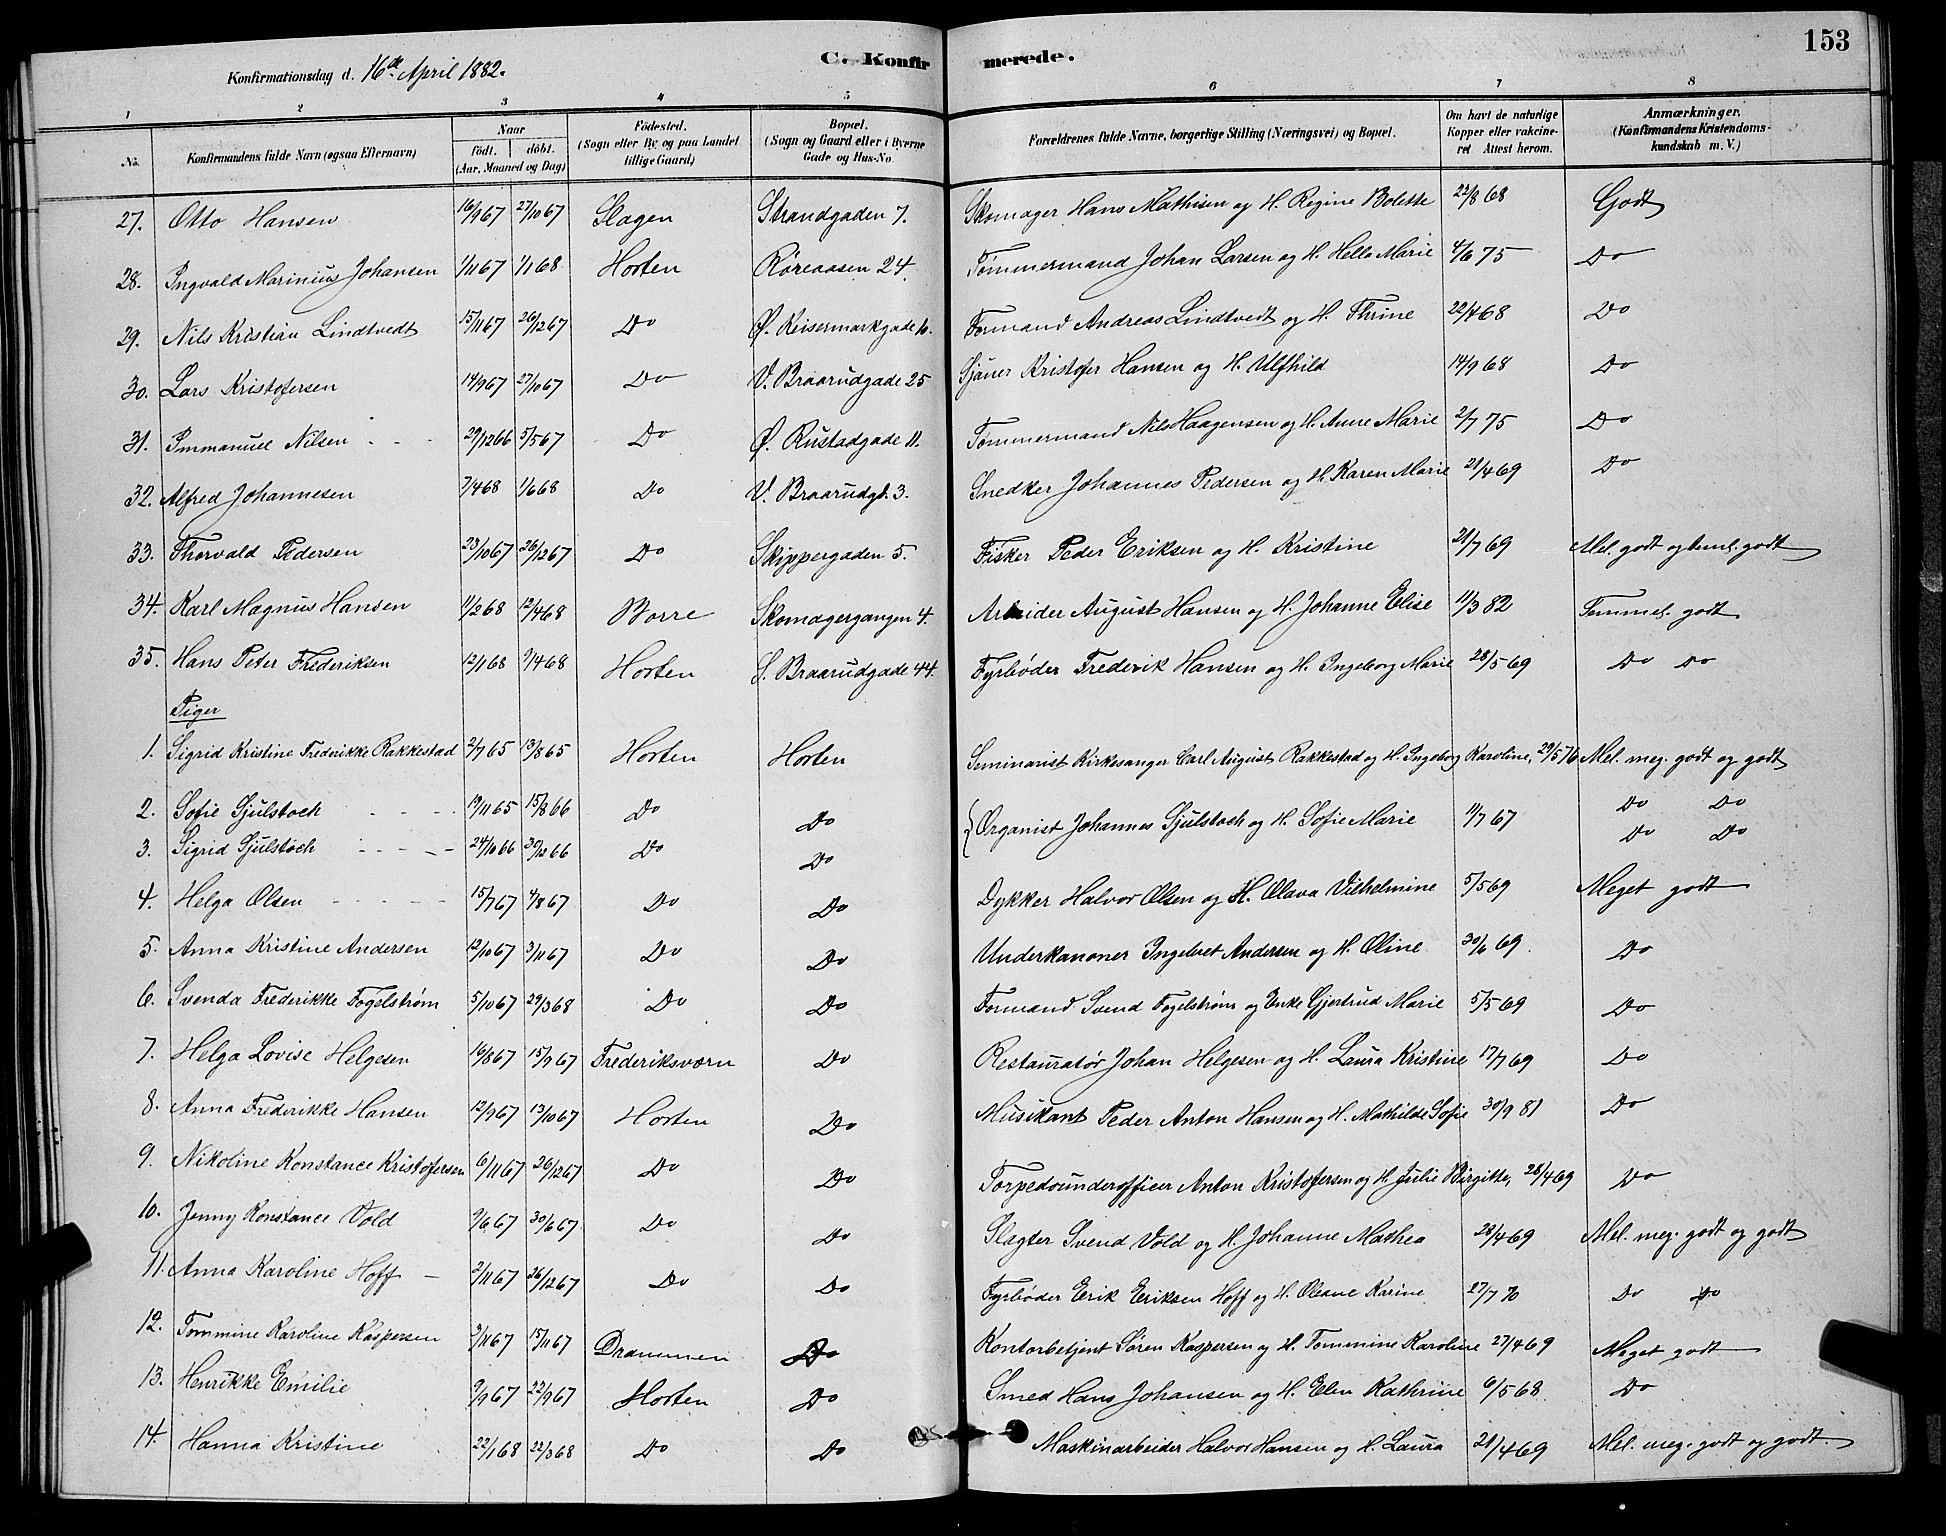 153
Konfirmationsdag d. 16de April 1882. C. Konfirmerede.
1 2 3 4 5 6 7 8
No. Konfirmandens fulde Navn (ogsaa Efternavn) Naar födt. döbt. (Aar, Maaned og Dag) Födested. (Sogn eller By og paa Landet tillige Gaard) Bopæl. (Sogn og Gaard eller i Byerne Gade og Hus-No. Forældrenes fulde Navne, borgerlige Stilling (Næringsvei) og Bopæl. Om havt de naturlige Kopper eller vakcineret Attest herom. Anmærkninger. (Konfirmandens Kristendomskundskab m. V.)
27. Otto Hansen 16/9 67 27/10 67 Slagen Strandgaden 7. Skomager Hans Mathisen og H. Regine Bolette 22/8 68 Godt
28. Ingvald Marinius Johansen 1/11 67 1/1 68 Horten Röreaasen 24. Tømmermand Johan Larsen og H. Helle Marie 4/6 75 Do
29. Nils Kristian Lindtvedt 15/11 67 26/12 67 Do Ø. Keisermarkgade 10. Formand Andreas Lindtvedt og H. Thrine 22/4 68 Do
30. Lars Kristofersen 14/9 67 27/10 67 Do V. Braarudgade 25 Sjauer Kristofer Hansen og H. Ulfhild 14/9 68 Do
31. Immanuel Nilsen 29/12 66 5/5 67 Do Ø. Rustadgade 11. Tømmermand Nils Haagensen og H. Anne Marie 2/7 75 Do
32. Alfred Johannesen 7/4 68 1/6 68 Do V. Braarudgt. 3. Snedker Johannes Pedersen og H. Karen Marie 21/4 69 Do
33. Thorvald Pedersen 23/10 67 26/12 67 Do Skippergaden 5. Fisker Peder Eriksen og H. Kristine 21/7 69 Mel. godt og teml. godt
34. Karl Magnus Hansen 11/2 68 12/4 68 Borre Skomagergangen 4. Arbeider August Hansen og H. Johanne Elise 11/3 82 Temmel. godt
35. Hans Peter Frederiksen 12/1 68 9/4 68 Horten S. Braarudgade 44. Fyrbøder Frederik Hansen og H. Ingeborg Marie 28/5 69 Do Do
Piger
1. Sigrid Kristine Frederikke Rakkestad 2/7 65 13/8 65 Horten Horten Seminarist Kirkesanger Carl August Rakkestad og H. Ingeborg Karoline, 29/5 76 Mel. meg. godt og godt
2. Sofie Gjulstoch 19/11 65 15/8 66 Do Do { Organist Johannes Gjulstoch og H. Sofie Marie 11/7 67 Do Do
3. Sigrid Gjulstoch 24/10 66 30/12 66 Do Do Do Do
4. Helga Olsen 15/7 67 4/8 67 Do Do Dykker Halvor Olsen og H. Olava Vilhelmine 5/5 69 Meget godt
5. Anna Kristine Andersen 12/10 67 3/11 67 Do Do Underkanoner Ingebret Andersen og H. Oline 30/6 69. Do
6. Svenda Frederikke Fogelstrøm 5/10 67 29/3 68 Do Do Formand Svend Fogelstrøm og Enke Gjertrud Marie 5/5 69 Do
7. Helga Lovise Helgesen 16/8 67 15/9 67 Frederiksværn Do Restauratør Johan Helgesen og H. Laura Kristine 17/7 69 Do
8. Anna Frederikke Hansen 12/9 67 13/10 67 Horten Do Musikant Peder Anton Hansen og H. Mathilde Sofie 30/9 81 Do
9. Nikoline Konstance Kristofersen 6/11 67 26/12 67 Do Do Torpedounderofficer Anton Kristofersen og H. Julie Birgitte, 28/4 69 Do
10. Jenny Konstance Vold 9/6 67 30/6 67 Do Do Slagter Svend Vold og H. Johanne Mathea 28/4 69 Mel. meg. godt og godt
11. Anna Karoline Hoff 2/11 67 26/12 67 Do Do Fyrbøder Erik Eriksen Hoff og H. Oleane Karine 27/7 70 Do Do
12. Tommine Karoline Kaspersen 3/11 67 15/11 67 Drammen Do Kontorbetjent Sören Kaspersen og H. Tommine Karoline 27/4 69 Meget godt
13. Henrikke Emilie 9/9 67 22/9 67 Horten Do Smed Hans Johansen og H. Elen Kathrine 6/5 68. Do
14. Hanna Kristine 22/1 68 22/3 68 Do Do Maskinarbeider Halvor Hansen og H. Laura 21/4 69 Mel. meg. godt og godt.